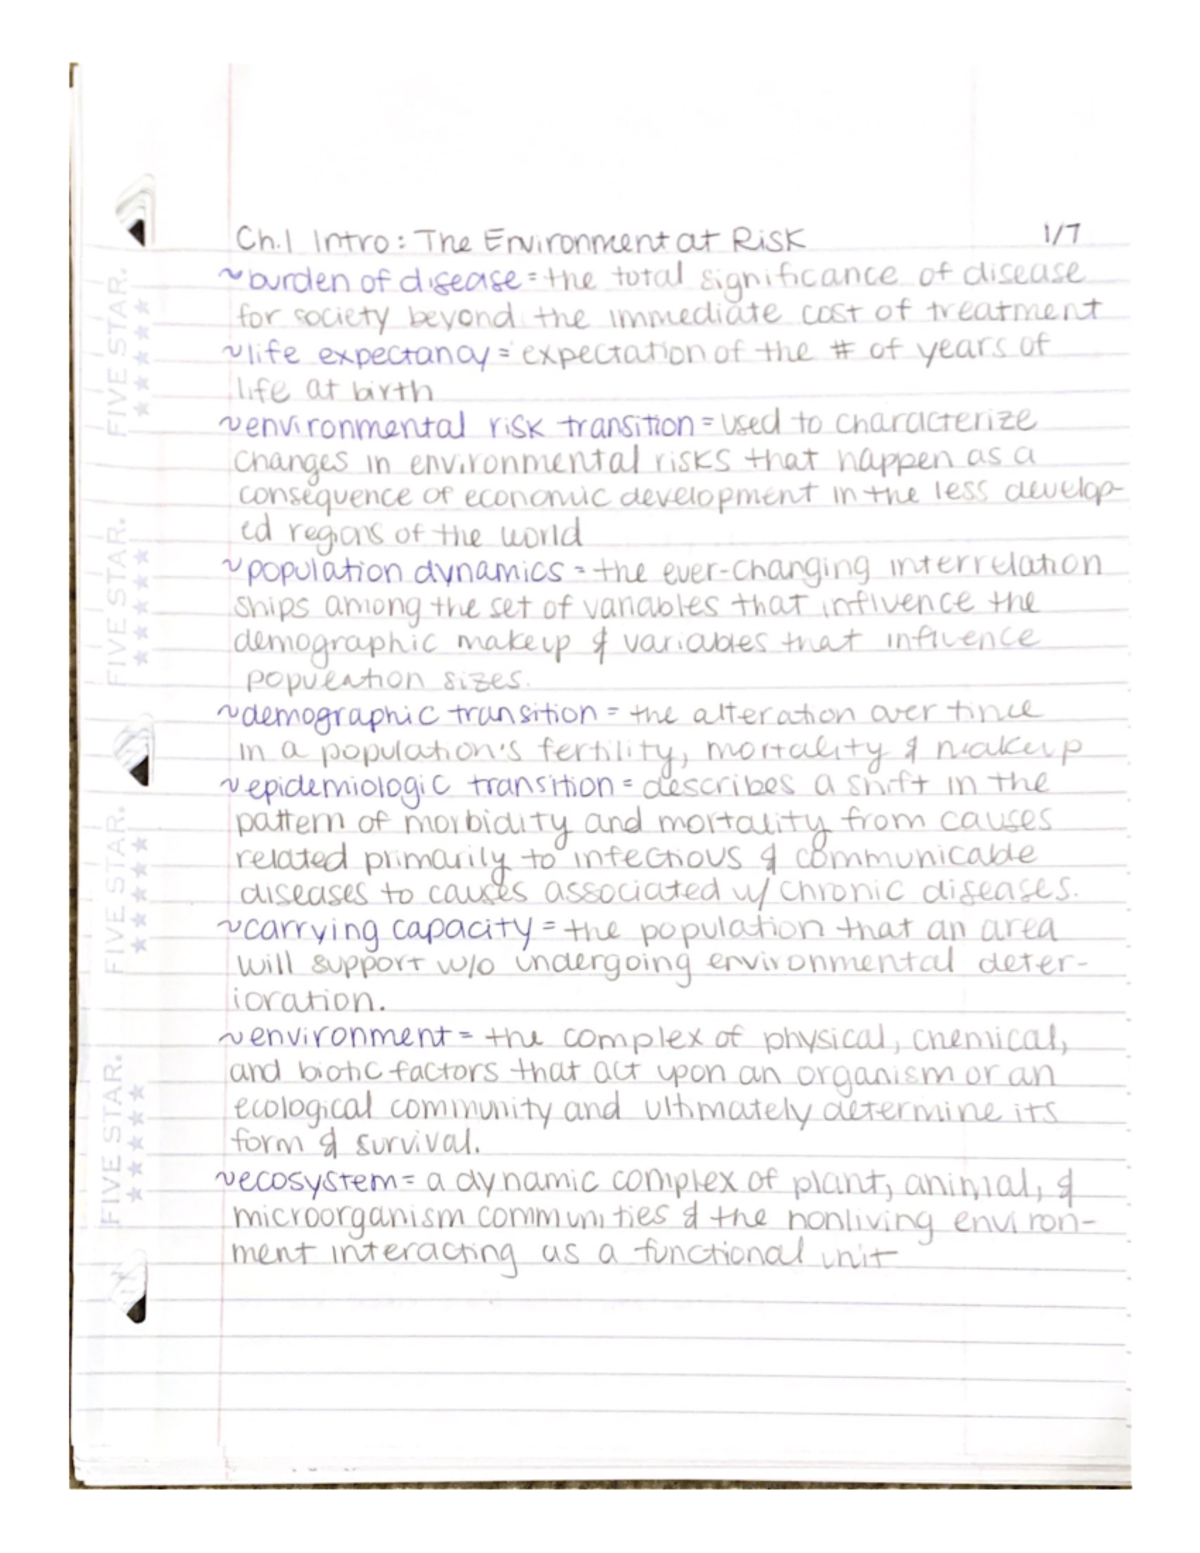 Ch.1 Intro: The Environment at Risk 1/7
~burden of disease = the total significance of disease
for society beyond the immediate cost of treatment
~life expectancy = expectation of the # of years of
life at birth
~environmental risk transition = used to characterize
changes in environmental risks that happen as a
consequence of economic development in the less develop-
ed regions of the world
~population dynamics = the ever-changing interrelation
ships among the set of variables that influence the
demographic makeup & variables that influence
population sizes.
~demographic transition = the alteration over time
in a population's fertility, mortality & makeup
~epidemiologic transition = describes a shift in the
pattern of morbidity and mortality from causes
related primarily to infectious & communicable
diseases to causes associated w/ chronic diseases.
~carrying capacity = the population that an area
will support w/o undergoing environmental deter-
ioration.
~environment = the complex of physical, chemical,
and biotic factors that act upon an organism or an
ecological community and ultimately determine its
form & survival.
~ecosystem = a dynamic complex of plant, animal, &
microorganism communities & the nonliving environ-
ment interacting as a functional unit
FIVE STAR.
FIVE STAR.
FIVE STAR.
FIVE STAR.